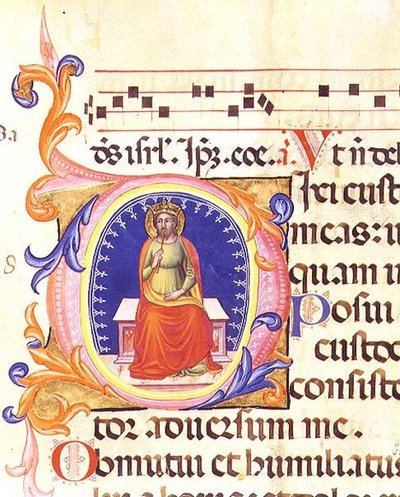 ds isrl. Ips. eoe. a Vt n del
DIxi cust
meas: u
quam i
Posui
custod
consiste
tor aduersum me.
Obmutui et humiliatus